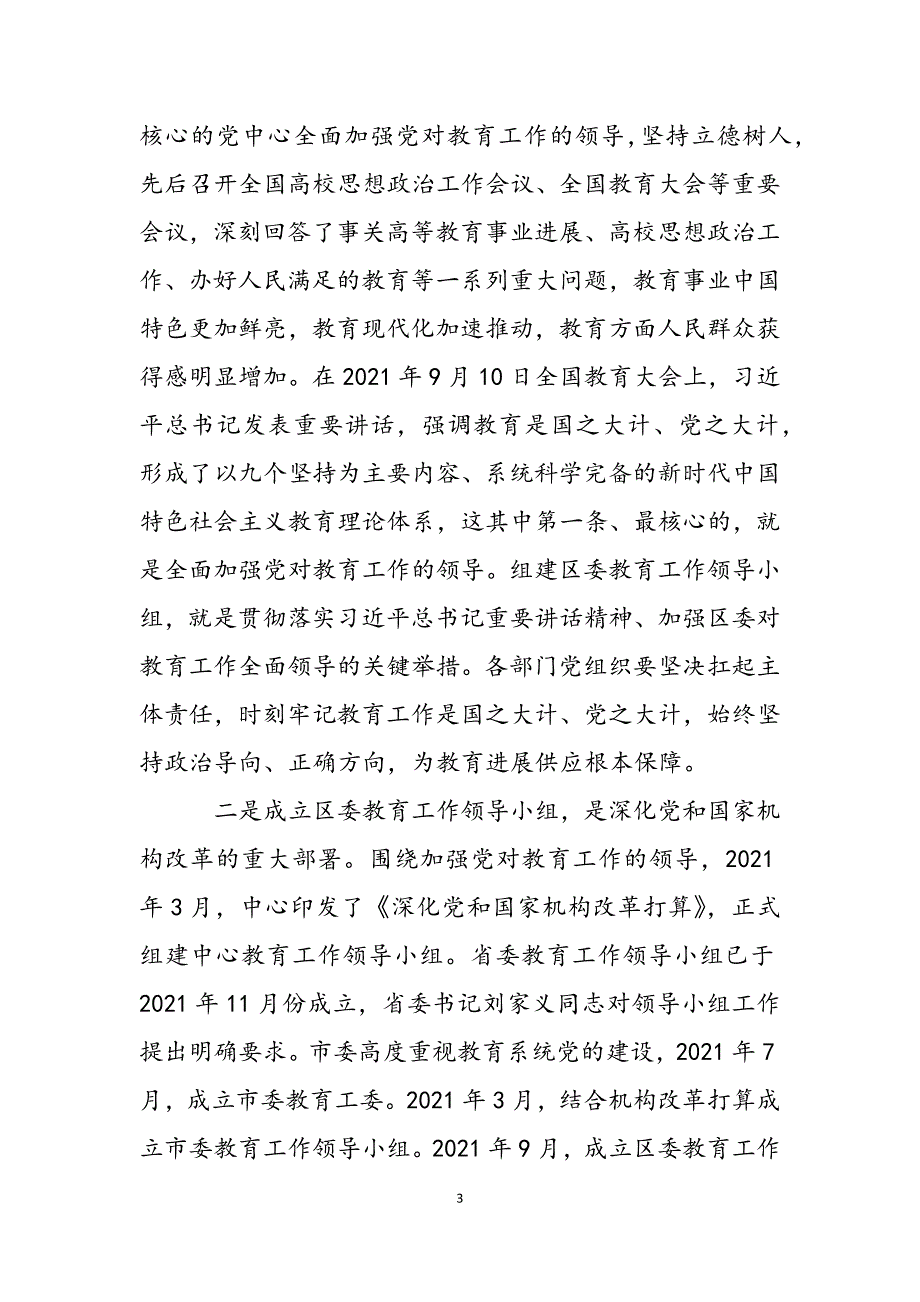 核心的党中心全面加强党对教育工作的领导，坚持立德树人，
先后召开全国高校思想政治工作会议、全国教育大会等重要
会议，深刻回答了事关高等教育事业进展、高校思想政治工
作、办好人民满足的教育等一系列重大问题，教育事业中国
特色更加鲜亮，教育现代化加速推动，教育方面人民群众获
得感明显增加。在 2021 年 9 月 10 日全国教育大会上，习近
平总书记发表重要讲话，强调教育是国之大计、党之大计，
形成了以九个坚持为主要内容、系统科学完备的新时代中国
特色社会主义教育理论体系，这其中第一条、最核心的，就
是全面加强党对教育工作的领导。组建区委教育工作领导小
组，就是贯彻落实习近平总书记重要讲话精神、加强区委对
教育工作全面领导的关键举措。各部门党组织要坚决扛起主
体责任，时刻牢记教育工作是国之大计、党之大计，始终坚
持政治导向、正确方向，为教育进展供应根本保障。
二是成立区委教育工作领导小组，是深化党和国家机
构改革的重大部署。围绕加强党对教育工作的领导，2021
年 3 月，中心印发了《深化党和国家机构改革打算》，正式
组建中心教育工作领导小组。省委教育工作领导小组已于
2021 年 11 月份成立，省委书记刘家义同志对领导小组工作
提出明确要求。市委高度重视教育系统党的建设，2021 年 7
月，成立市委教育工委。2021 年 3 月，结合机构改革打算成
立市委教育工作领导小组。2021 年 9 月，成立区委教育工作
3